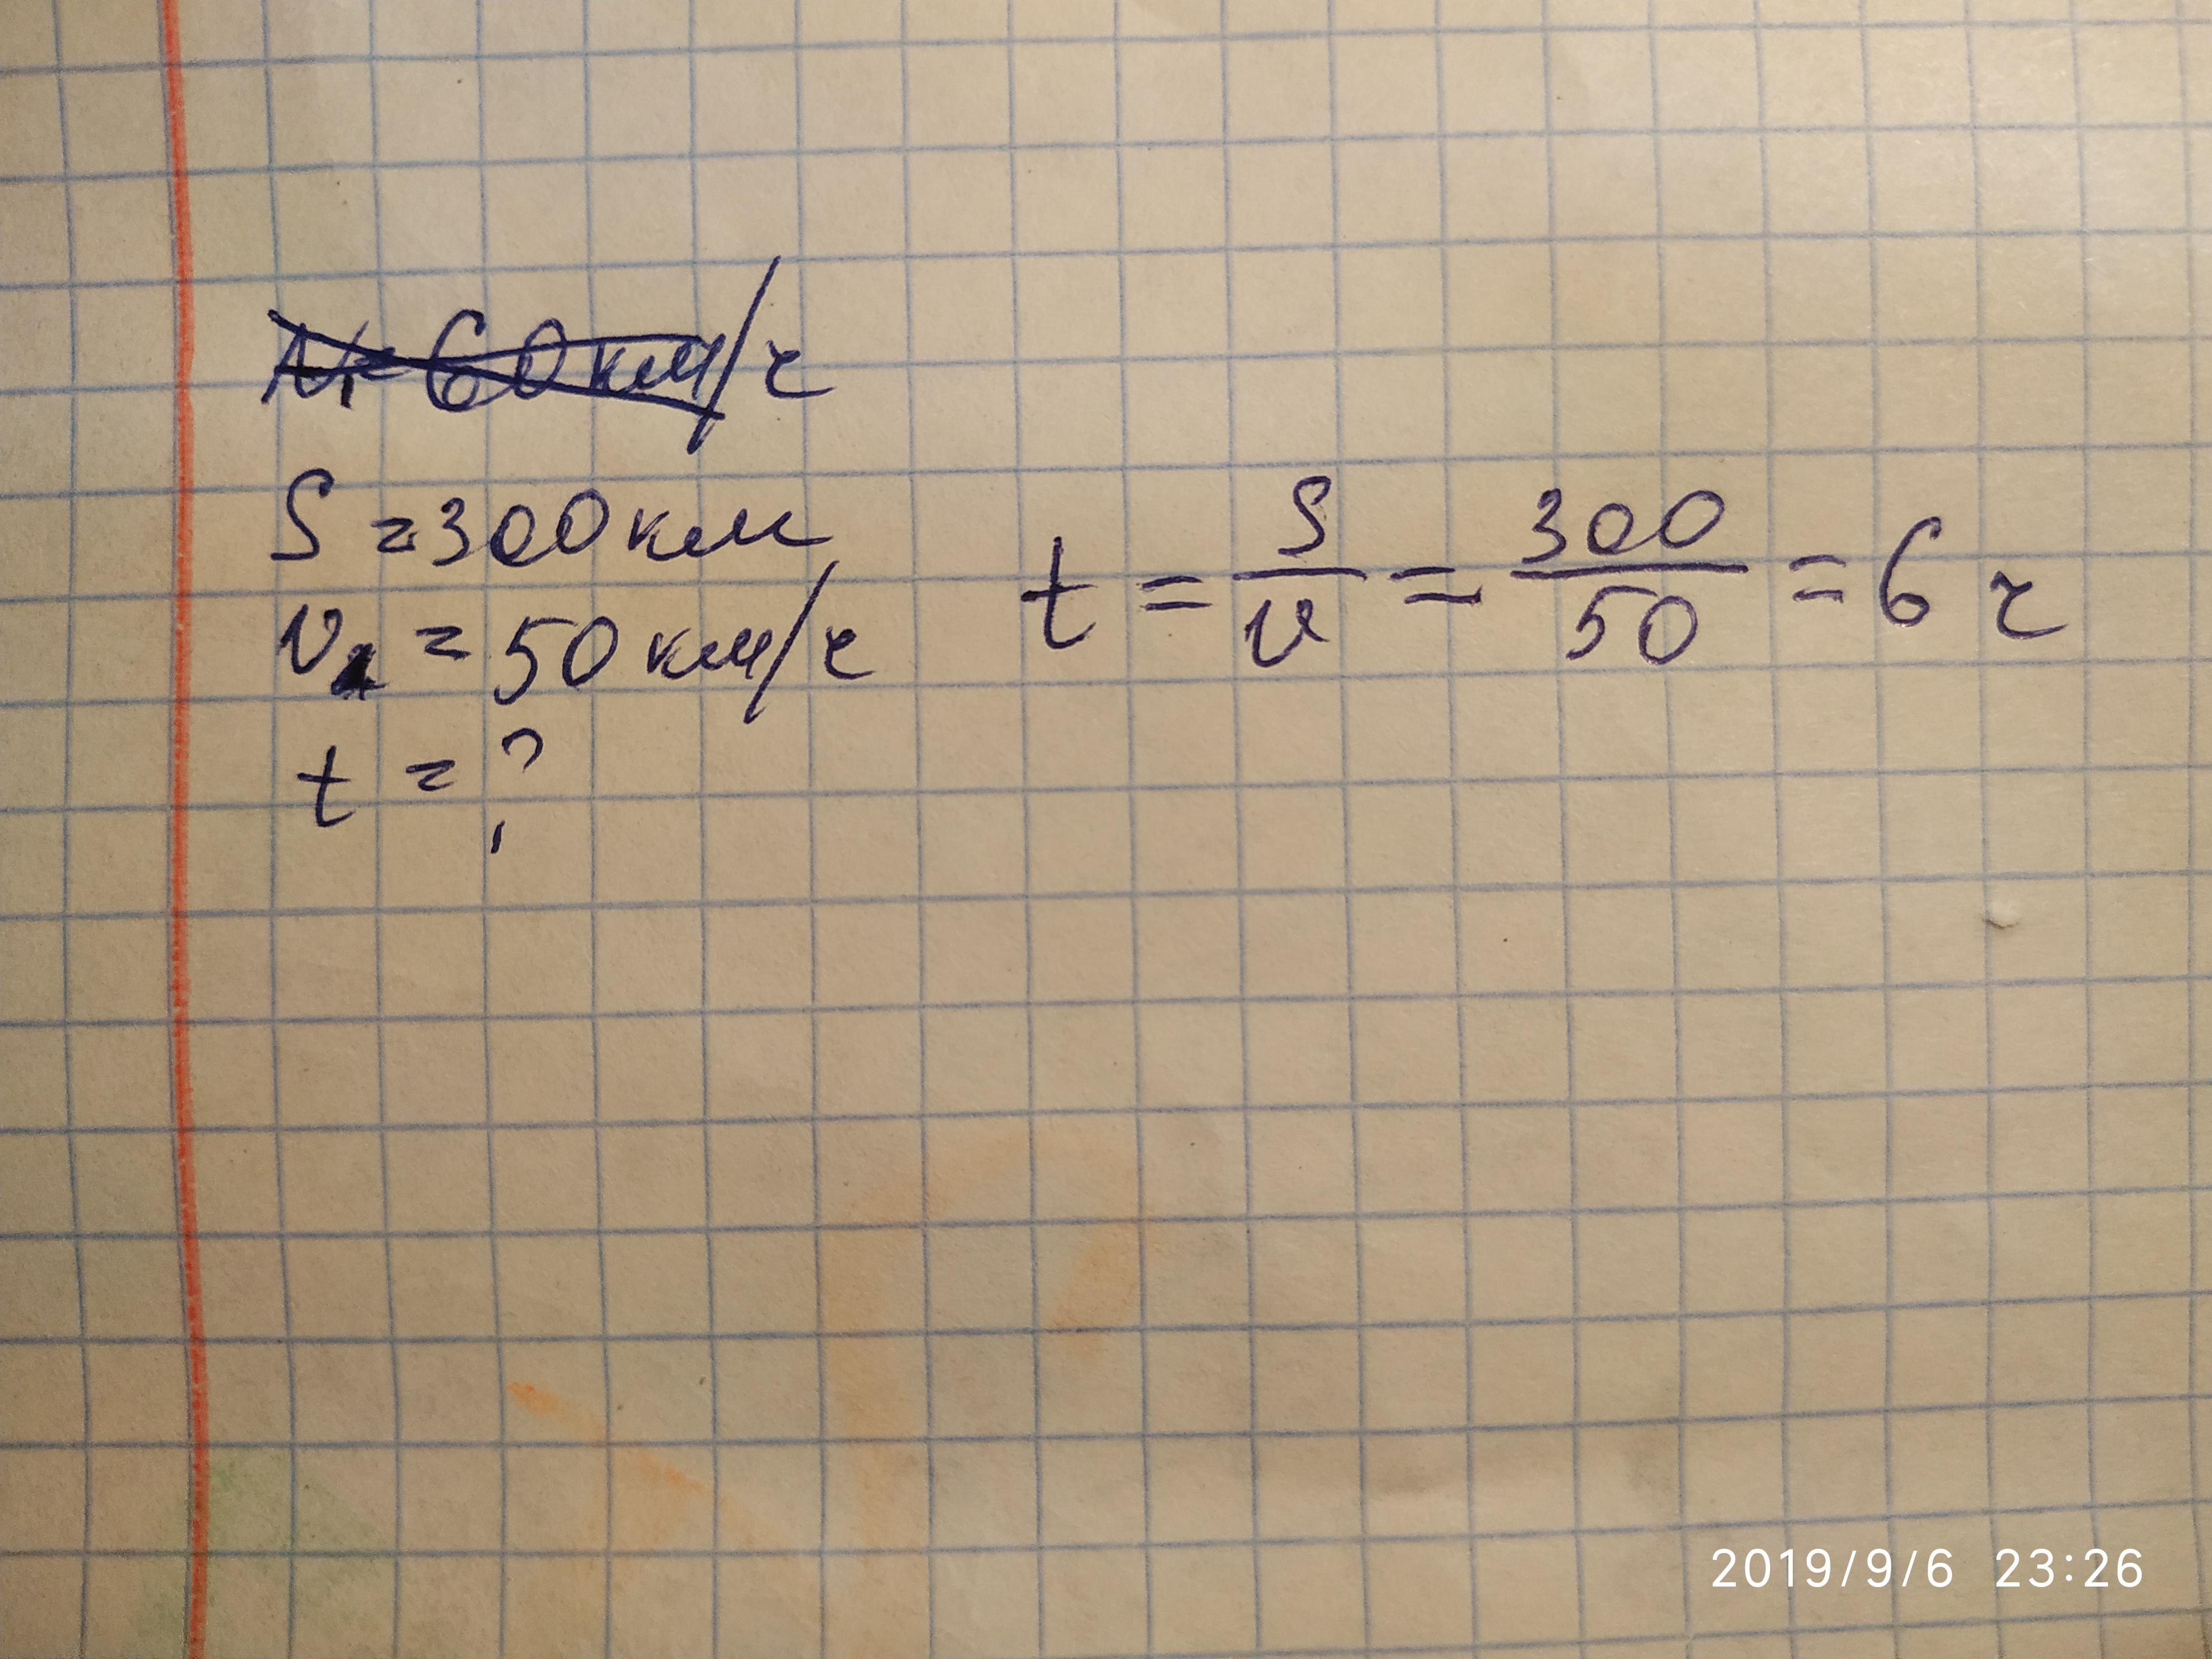 v₁=60км/ч
S=300км
v=50км/ч
t=?
t = S/v = 300/50 = 6 ч
2019/9/6 23:26